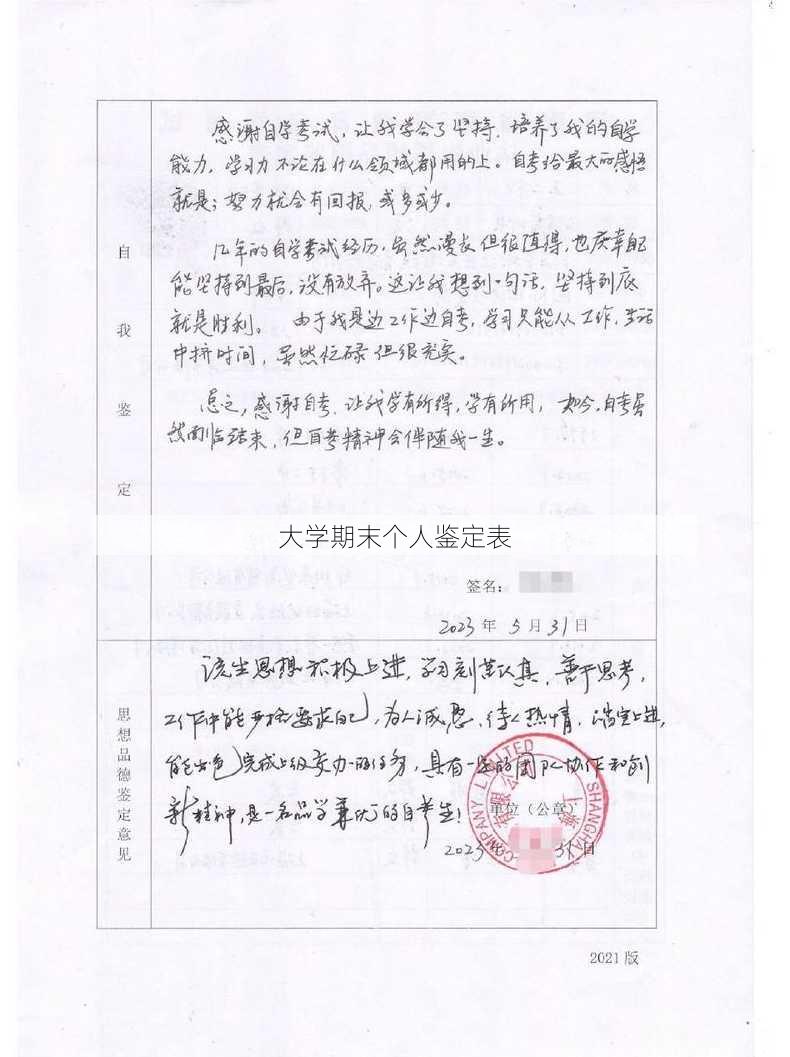 感谢自学考试，让我学会了坚持，培养了我的自学
能力，学习力不论在什么领域都用的上。自考给最大的感悟
就是：努力就会有回报，或多或少。
几年的自学考试经历，虽然漫长但很值得，也庆幸自己
能坚持到最后，没有放弃。这让我想到一句话，坚持到底
就是胜利。 由于我是边工作边自考，学习只能从工作，生活
中挤时间，虽然忙碌但很充实。
总之，感谢自考，让我学有所得，学有所用，如今，自考虽
然面临结束，但自考精神会伴随我一生。
自我鉴定
大学期末个人鉴定表
签名：
2023年 5月31日
该生思想积极上进，学习刻苦认真，善于思考，
工作中能严格要求自己，为人诚恳，待人热情，踏实上进，
能出色完成上级交办的任务，具有一定的团队协作和创
新精神，是一名品学兼优的自考生！
思想品德鉴定意见
单位（公章）
2023年 31日
COMPANY LIMITED SHANGHAI
有限公 上海
2021版